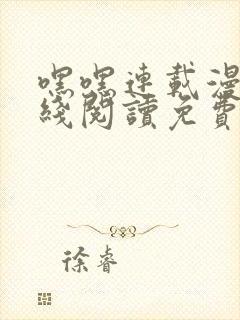 嘿嘿連載漫
綫閱讀免費
徐睿